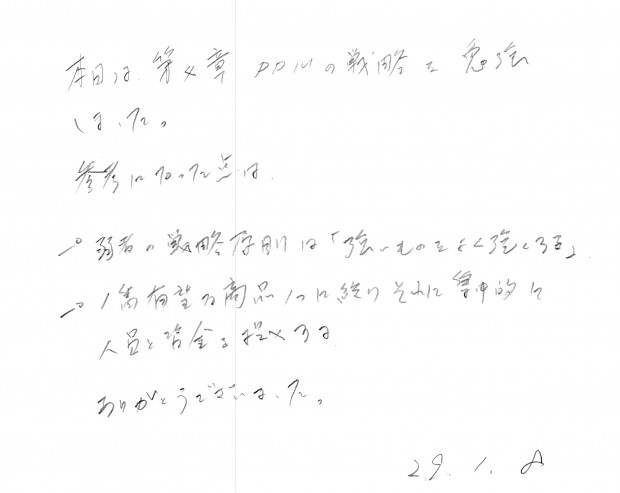 本日は、第4章 PPMの戦略を勉強
しました。
参考になった点は、
→ 弱者の戦略原則は「強いものをより強くする」
→ 1番有望な商品1つに絞りそれに集中的に
人員と資金を投入する
ありがとうございました。
29.1.8